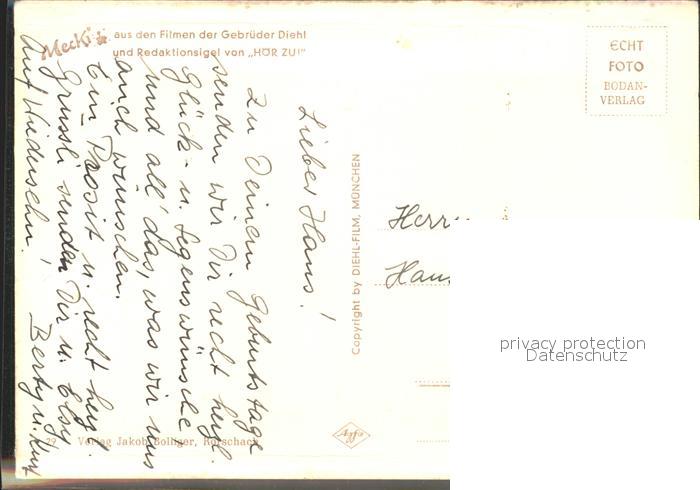 Mecki
aus den Filmen der Gebrüder Diehl
und Redaktionsigel von „HÖR ZU!"
ECHT
FOTO
BODAN-
VERLAG
Lieber Hans!
Zu Deinem Geburtstage
senden wir Dir recht herzl.
Glück- u. Segenswünsche
und all' das, was wir uns
auch wünschen.
Ein Prosit u. recht herzl.
Grüssli senden Dir u. Elsy
Auf Wiedersehn! Berty u. Kurt
Copyright by DIEHL-FILM, MÜNCHEN
Herrn
Hans
privacy protection
Datenschutz
Agfa
29 Verlag Jakob Bolliger, Rorschach